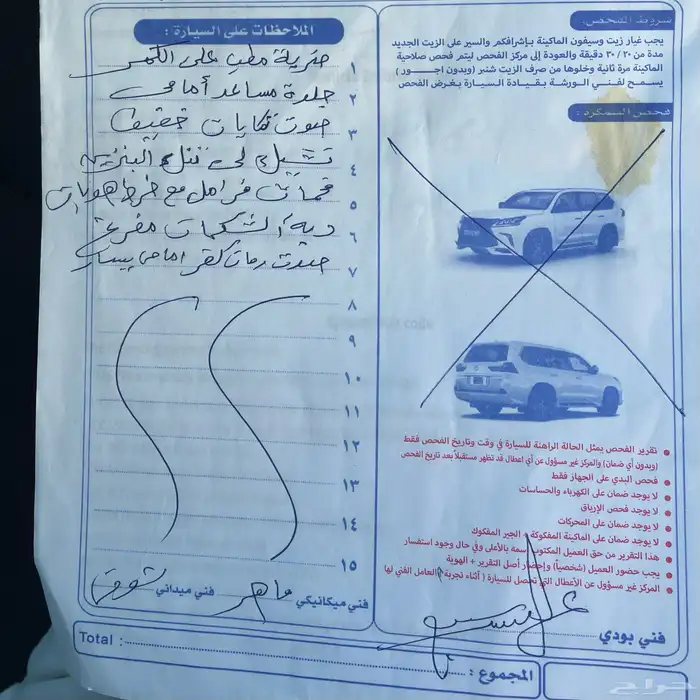 شروط الفحص:
يجب غيار زيت وسيفون الماكينة بإشرافكم والسير على الزيت الجديد
مدة من ٢٠ / ٣٠ دقيقة والعودة إلى مركز الفحص ليتم فحص صلاحية
الماكينة مرة ثانية وخلوها من صرف الزيت شنبر (وبدون اجــور)
يسمح لفني الورشة بقيادة السيارة بغرض الفحص
فحص السمكرة :
تقرير الفحص يمثل الحالة الراهنة للسيارة في وقت وتاريخ الفحص فقط
(وبدون أي ضمان) والمركز غير مسؤول عن أي اعطال قد تظهر مستقبلاً بعد تاريخ الفحص
فحص البدي على الجهاز فقط
لا يوجد ضمان على الكهرباء والحساسات
لا يوجد فحص الإرياق
لا يوجد ضمان على المحركات
لا يوجد ضمان على الماكينة المفكوكة الجير المفكوك
هذا التقرير من حق العميل المكتوب اسمه بالأعلى وفي حال وجود استفسار
يجب حضور العميل (شخصياً) وإحضار أصل التقرير + الهوية
المركز غير مسؤول عن الأعطال التي تحصل للسيارة ( أثناء تجربة العامل الفني لها
فني بودي
الملاحظات على السيارة :
١ ضربة مطب على الكمر
٢ جلدة مساعد أمامي
٣ صوت تكايات خفيف
٤
٥ قماش فرامل مع خرط هوبات
٦ دبة الشكمان مفرغة
٧ صوت رمان كفر امامي يسار
٨
٩
١٠
١١
١٢
١٣
١٤
١٥
فني ميكانيكي ماهر فني ميداني
المجموع : Total :
حراج